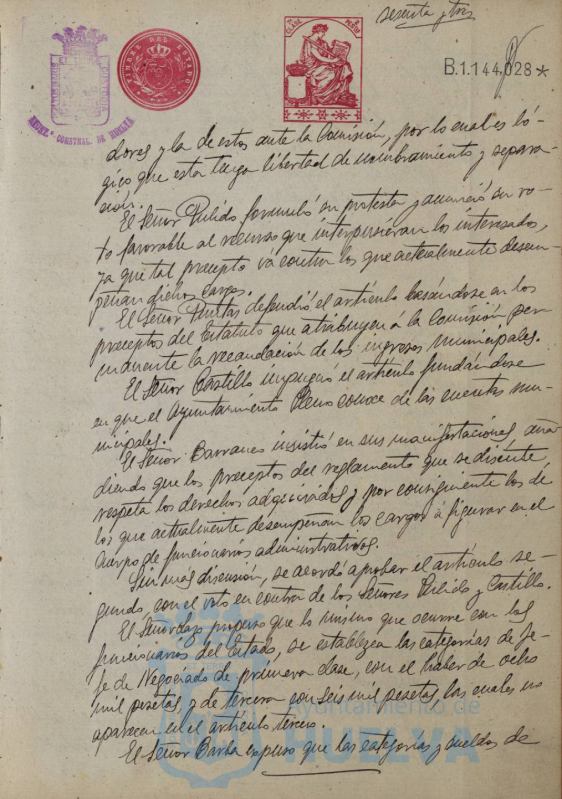 sesenta y tres
TIMBRE DEL ESTADO
8ª CLASE
PESETAS
B.1.144.028*
AYUNT.º CONSTNAL. DE HUELVA
dores y la de estos ante la Comisión, por lo cual es ló-
gico que esta tenga libertad de nombramiento y separa-
ción.
El Señor Pulido formuló su protesta y anunció su vo-
to favorable al recurso que interpusieran los interesados,
ya que tal precepto vá contra los que actualmente desem-
peñan dichos cargos.
El Señor defendió el artículo basándose en los
preceptos del Estatuto que atribuyen á la Comisión per-
manente la recaudación de los ingresos municipales.
El Señor Castillo impugnó el artículo fundándose
en que el Ayuntamiento Pleno conoce de las cuentas mu-
nicipales.
El Señor Barranco insistió en sus manifestaciones, aña-
diendo que los preceptos del reglamento que se discute
respeta los derechos adquiridos y por consiguiente los de
los que actualmente desempeñan los cargos á figurar en el
Cuerpo de funcionarios administrativos.
Sin más discusión, se acordó aprobar el artículo se-
gundo, con el voto en contra de los Señores Pulido y Castillo.
El Señor propuso que lo mismo que ocurre con los
funcionarios del Estado, se establezca las categorías de Je-
fe de Negociado de primera clase, con el haber de ocho
mil pesetas, y de tercera con seis mil pesetas las cuales no
aparecen en el artículo tercero.
El Señor Barba expuso que las categorías y sueldos de
Ayuntamiento de
HUELVA